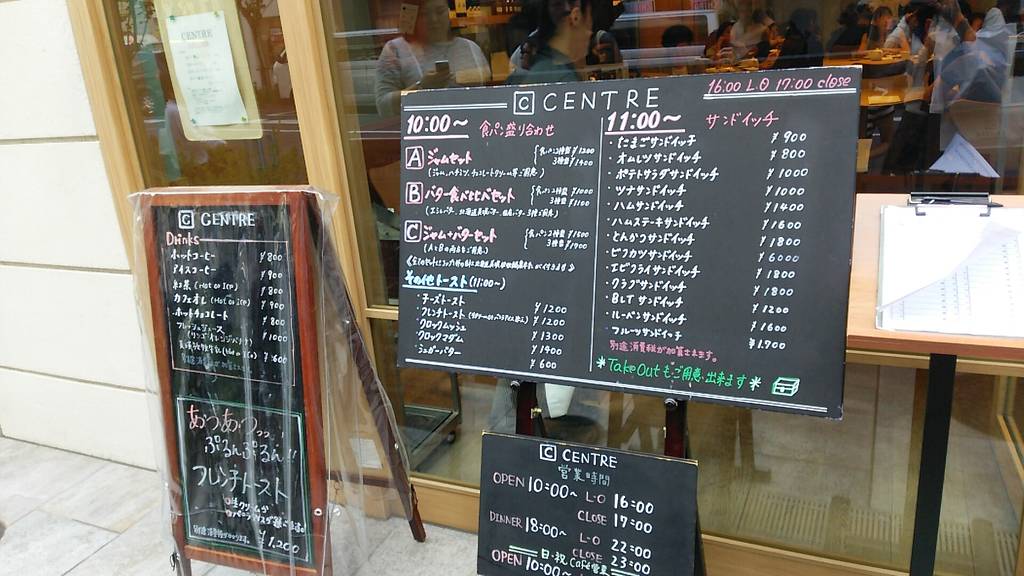 CENTRE
C CENTRE
Drinks
ホットコーヒー ¥800
アイスコーヒー ¥900
紅茶 (Hot or Ice)
カフェオレ (Hot or Ice) ¥900
ホットチョコレート ¥800
¥1000
¥600
あつあつ
ぷるんぷるん!!
フレンチトースト
¥1,200
C CENTRE
16:00 L.O 17:00 close
10:00~ 食パン盛り合わせ
A ジャムセット
2種盛 ¥1200
3種盛 ¥1400
B バター食べ比べセット
2種盛 ¥1000
3種盛 ¥1100
C ジャム・バターセット
2種盛 ¥1500
3種盛 ¥1700
(AとBの両方をご用意)
その他トースト (11:00~)
・チーズトースト ¥1200
・フレンチトースト ¥1200
・クロックムッシュ ¥1300
・クロックマダム ¥1400
・シュガーバター ¥600
11:00~ サンドイッチ
・たまごサンドイッチ ¥900
・オムレツサンドイッチ ¥800
・ポテトサラダサンドイッチ ¥1000
・ツナサンドイッチ ¥1000
・ハムサンドイッチ ¥1400
・ハムステーキサンドイッチ ¥1600
・とんかつサンドイッチ ¥1800
・ビフカツサンドイッチ ¥6000
・エビフライサンドイッチ ¥1800
・クラブサンドイッチ ¥1800
・BLTサンドイッチ ¥1200
・ルーベンサンドイッチ ¥1600
・フルーツサンドイッチ ¥1,700
別途消費税が加算されます。
*Take Outもご用意出来ます*
C CENTRE
営業時間
OPEN 10:00~ L・O 16:00
CLOSE 17:00
DINNER 18:00~ L・O 22:00
CLOSE 23:00
日・祝 Café営業
OPEN 10:00~